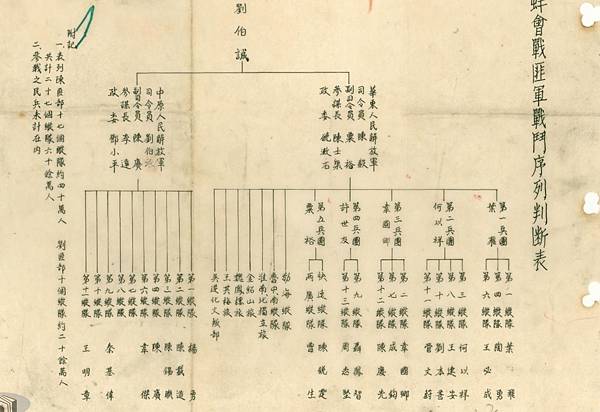 蚌會戰匪軍戰鬥序列判断表
劉伯誠
華東人民解放軍
司令員 陳毅
副司令員 粟裕
參謀長 陳士榘
政委 饒漱石
中原人民解放軍
司令員 劉伯誠
副司令員 陳賡
參謀長 李達
政委 鄧小平
第一兵團
葉飛
第二兵團
何以祥
第三兵團
韋國卿
第四兵團
許世友
第五兵團
粟裕
第一縱隊 葉飛
第四縱隊 陶勇
第六縱隊 王必成
第三縱隊 何以祥
第八縱隊 王建安
第十縱隊 劉本書
第十一縱隊 管文蔚
第二縱隊 韋國卿
第七縱隊 成鈞
第十二縱隊 陳慶先
第九縱隊 聶鳳智
第十三縱隊 周志堅
快速縱隊 陳銳霆
兩廣縱隊 曾生
渤海縱隊
魯中南縱隊
淮南北獨立旅
金紹山旅
魏鳳樓旅
王其梅旅
吳運化文城部
第一縱隊 楊勇
第二縱隊 陳載道
第三縱隊 陳錫聯
第四縱隊 陳賡
第六縱隊 韋傑
第七縱隊
第八縱隊
第九縱隊 秦基偉
第十縱隊
第十一縱隊 王明章
附記
一、表列陳匪部十七個縱隊約四十萬人 劉匪部十個縱隊約二十餘萬人
共計二十七個縱隊六十餘萬人
二、參戰之民兵未計在內